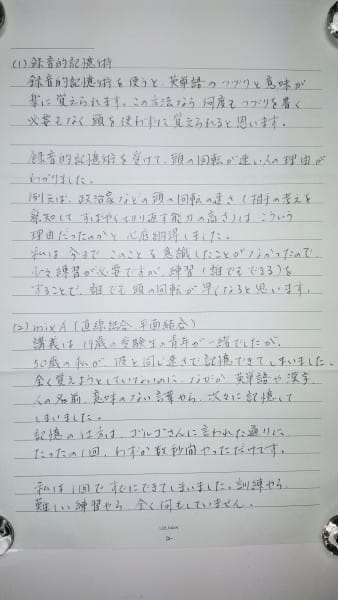 (1) 録音的記憶術
録音的記憶術を使うと、英単語のつづりと意味が
楽に覚えられます。この方法なら何度もつづりを書く
必要もなく頭を使わずに覚えられると思います。
録音的記憶術を受けて、頭の回転が速い人の理由が
わかりました。
例えば、政治家などの頭の回転の速さ(相手の考えを
察知して すばやく切り返す能力の高さ)は、こういう
理由だったのかと 心底納得しました。
私は今まで このことを意識したことがなかったので、
少々練習が必要ですが、練習(誰でもできる)を
することで、誰でも頭の回転が早くなると思います。
(2) mixA (直線結合、平面結合)
講義は19歳の受験生の青年が一緒でしたが、
50歳の私が、彼と同じ速さで記憶できてしまいました。
全く覚えようとしていないのに、なぜか、英単語や漢字、
人の名前、意味のない言葉やら、次々に記憶して
しまいました。
記憶のしかたは、ゴルゴさんに言われた通りに
たったの1回、わずか数秒間やっただけです。
私は1回で すぐにできてしまいました。訓練やら、
難しい練習やら 全く何もしていません。